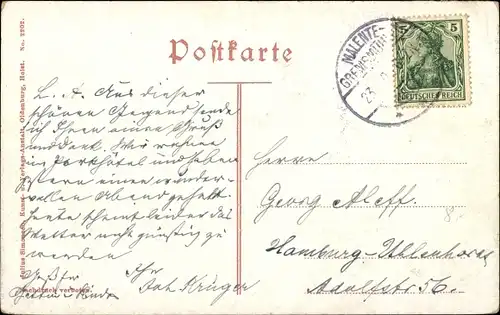 Postkarte
MALENTE-
GREMSMÜHLEN
23
5
DEUTSCHES REICH
No. 2202.
Julius Simonsen, Kunst-Verlags-Anstalt, Oldenburg, Holst.
Nachdruck verboten.
L. A. Aus dieser
schönen Gegend sende
ich Ihnen einen Gruß
und Dank. Wir wohnen
im Parkhôtel und haben
gestern einen wunder-
vollen Abend gehabt.
Heute scheint leider das
Wetter nicht günstig zu
werden
Ihr
Joh Krüger
Herrn
Georg Aleff.
Hamburg-Uhlenhorst
Adolfstr 56.